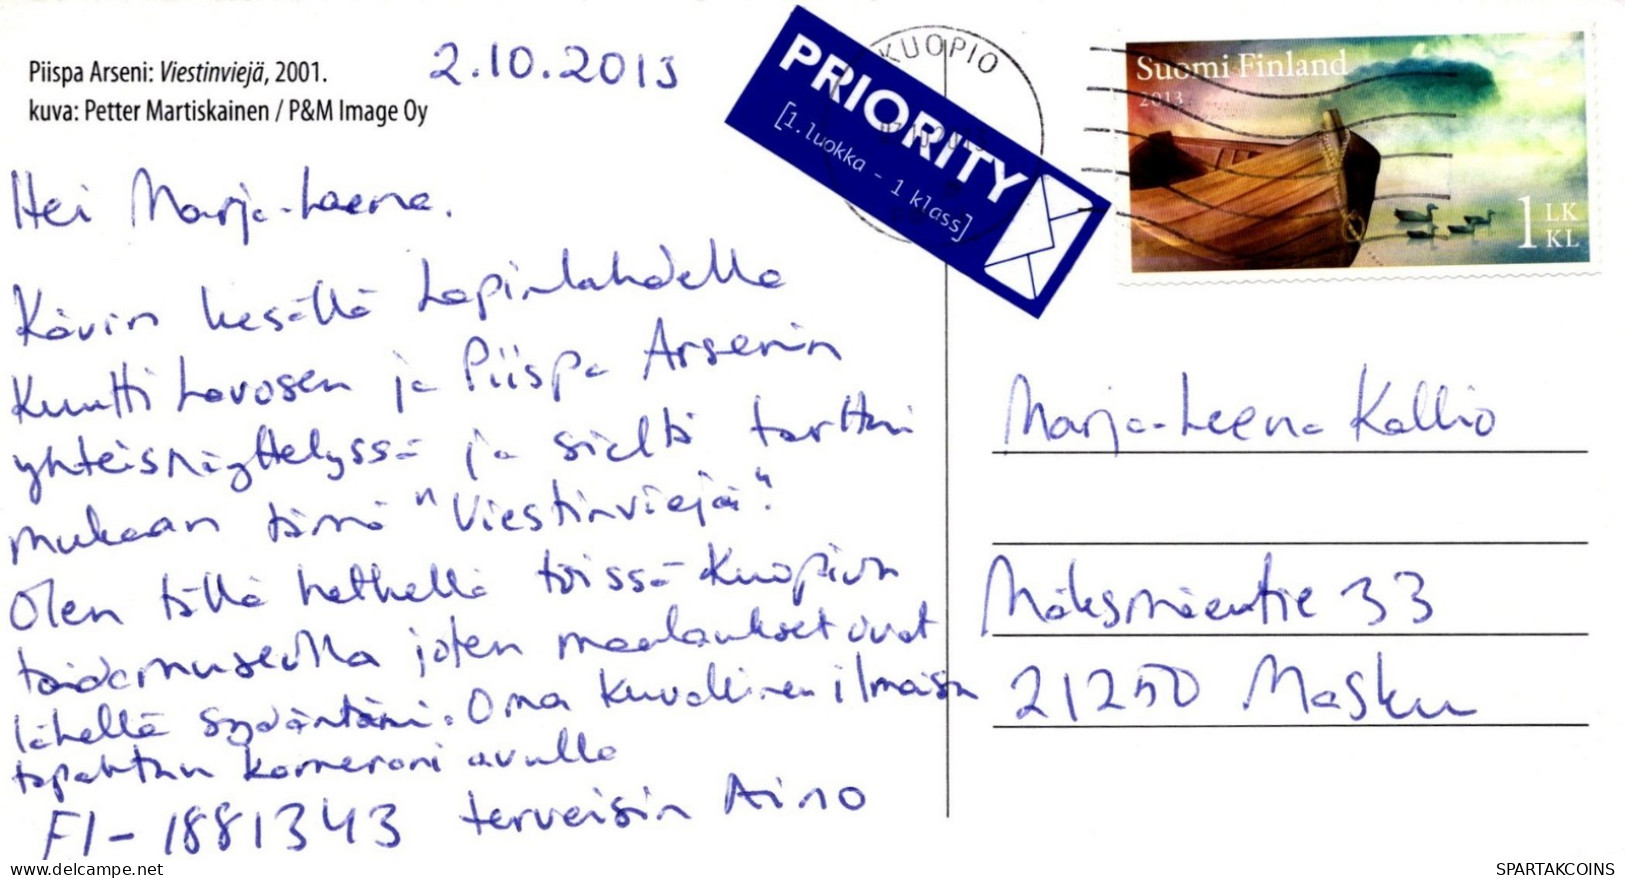 Piispa Arseni: Viestinviejä, 2001.
kuva: Petter Martiskainen / P&M Image Oy
2.10.2013
PRIORITY
[1.luokka - 1 klass]
KUOPIO
Suomi Finland
2013
1 LK
KL
Hei Marja-Leena.
Kävin kesällä Lapinlahdella
Kuutti Lavosen ja Piispa Arsenin
yhteisnäyttelyssä ja sieltä tarttui
mukaan tämä "Viestinviejä".
Olen tällä hetkellä töissä Kuopion
taidemuseolla joten maalaukset ovat
lähellä sydäntäni. Oma kuvallinen ilmaisu
tapahtuu kamerani avulla
FI-1881343 terveisin Aino
Marja-Leena Kallio
Mäksmäentie 33
21250 Masku
akpool.de
SPARTAKCOINS